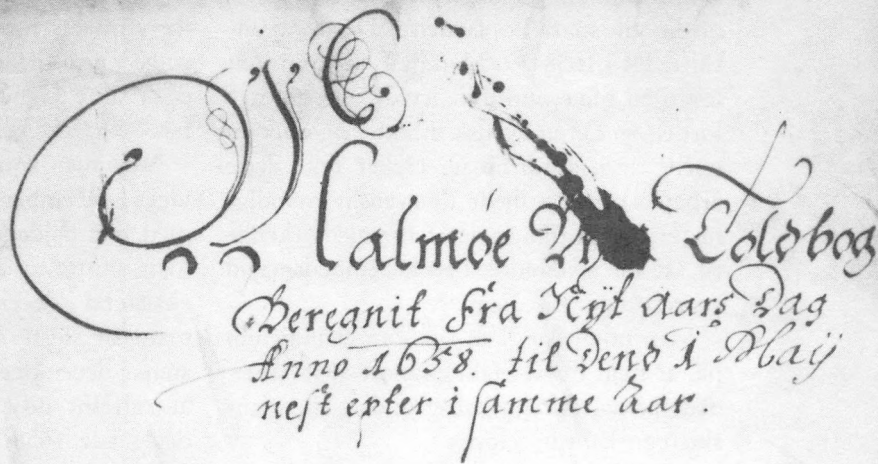 Malmøe Toldbog
Beregnit fra Nÿt Aars Dag
Anno 1658. til Dend 1 Maÿ
nest epter i samme Aar.